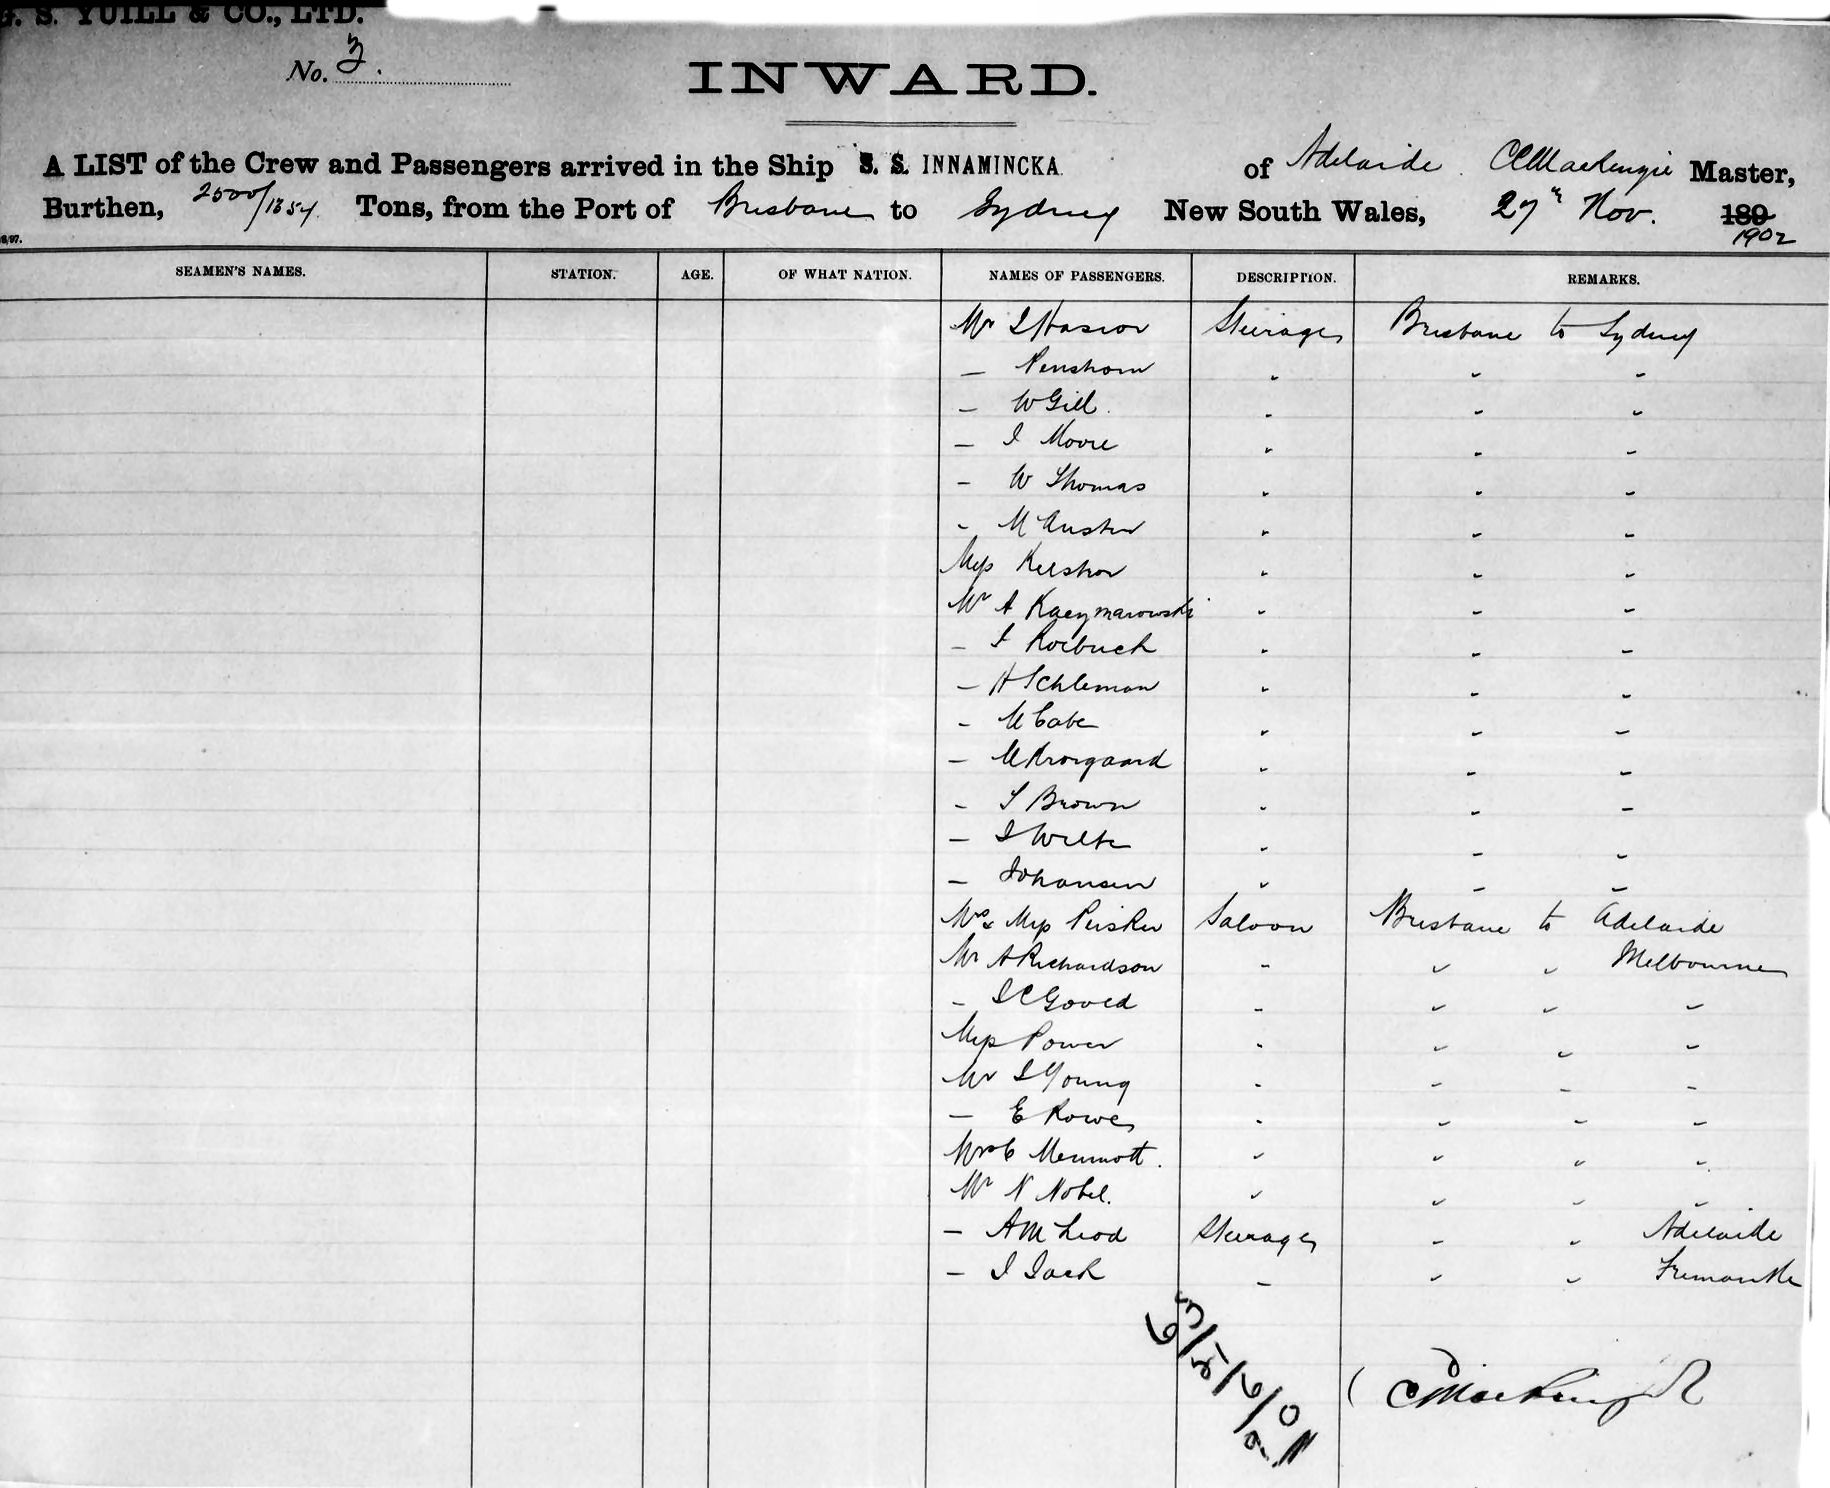 G. S. YUILL & CO., LTD.
No. 3.
INWARD.
A LIST of the Crew and Passengers arrived in the Ship S. S. INNAMINCKA. of Adelaide. Mackenzie Master,
Burthen, 2500/1354 Tons, from the Port of Brisbane to Sydney New South Wales, 27th Nov. 189
1902
SEAMEN'S NAMES. STATION. AGE. OF WHAT NATION. NAMES OF PASSENGERS. DESCRIPTION. REMARKS.
Mr Steerage Brisbane to Sydney
— Penshorn " " "
— W Gill. " " "
— J Moore " " "
— W Thomas " " "
- " " "
Miss " " "
Mr A Kaczmarowski " " "
— J Roebuck " " "
— H Schleman " " "
- McCabe " " "
— " " "
- J Brown " " "
— " " "
— Johansen " " "
Mr & Mrs Peisker Saloon Brisbane to Adelaide
Mr A Richardson " " " Melbourne
- J C Goved " " " "
Power " " " "
Mr J Young " " " "
— E Rowe " " " "
Mrs C Memmott. " " " "
Mr N Nobel. " " " "
— A McLeod Steerage " " Adelaide
— J Jack " " " Fremantle